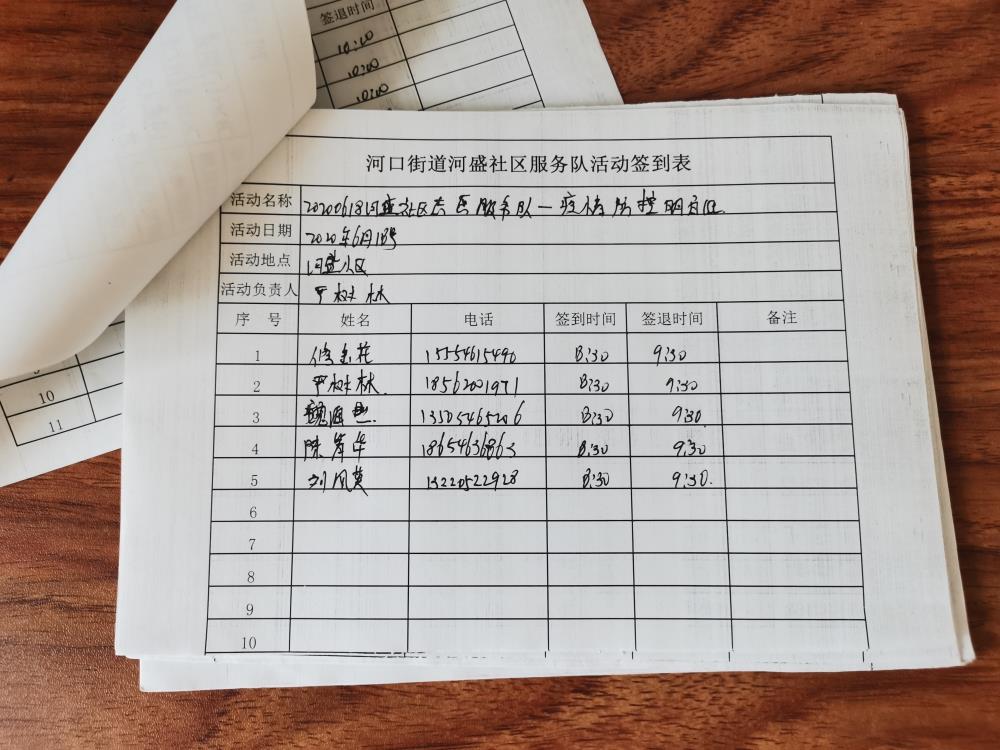 签退时间
10:00
10:00
10:00
10
11
河口街道河盛社区服务队活动签到表
活动名称 20200618河盛社区党员服务队一疫情防控明白纸
活动日期 2020年6月18号
活动地点 河盛小区
活动负责人 树林
序号 姓名 电话 签到时间 签退时间 备注
1 8:30 9:30
2 树林 18562001971 8:30 9:30
3 魏海燕 13305465206 8:30 9:30
4 陈岸华 18654636863 8:30 9:30
5 刘凤英 13220522928 8:30 9:30
6
7
8
9
10